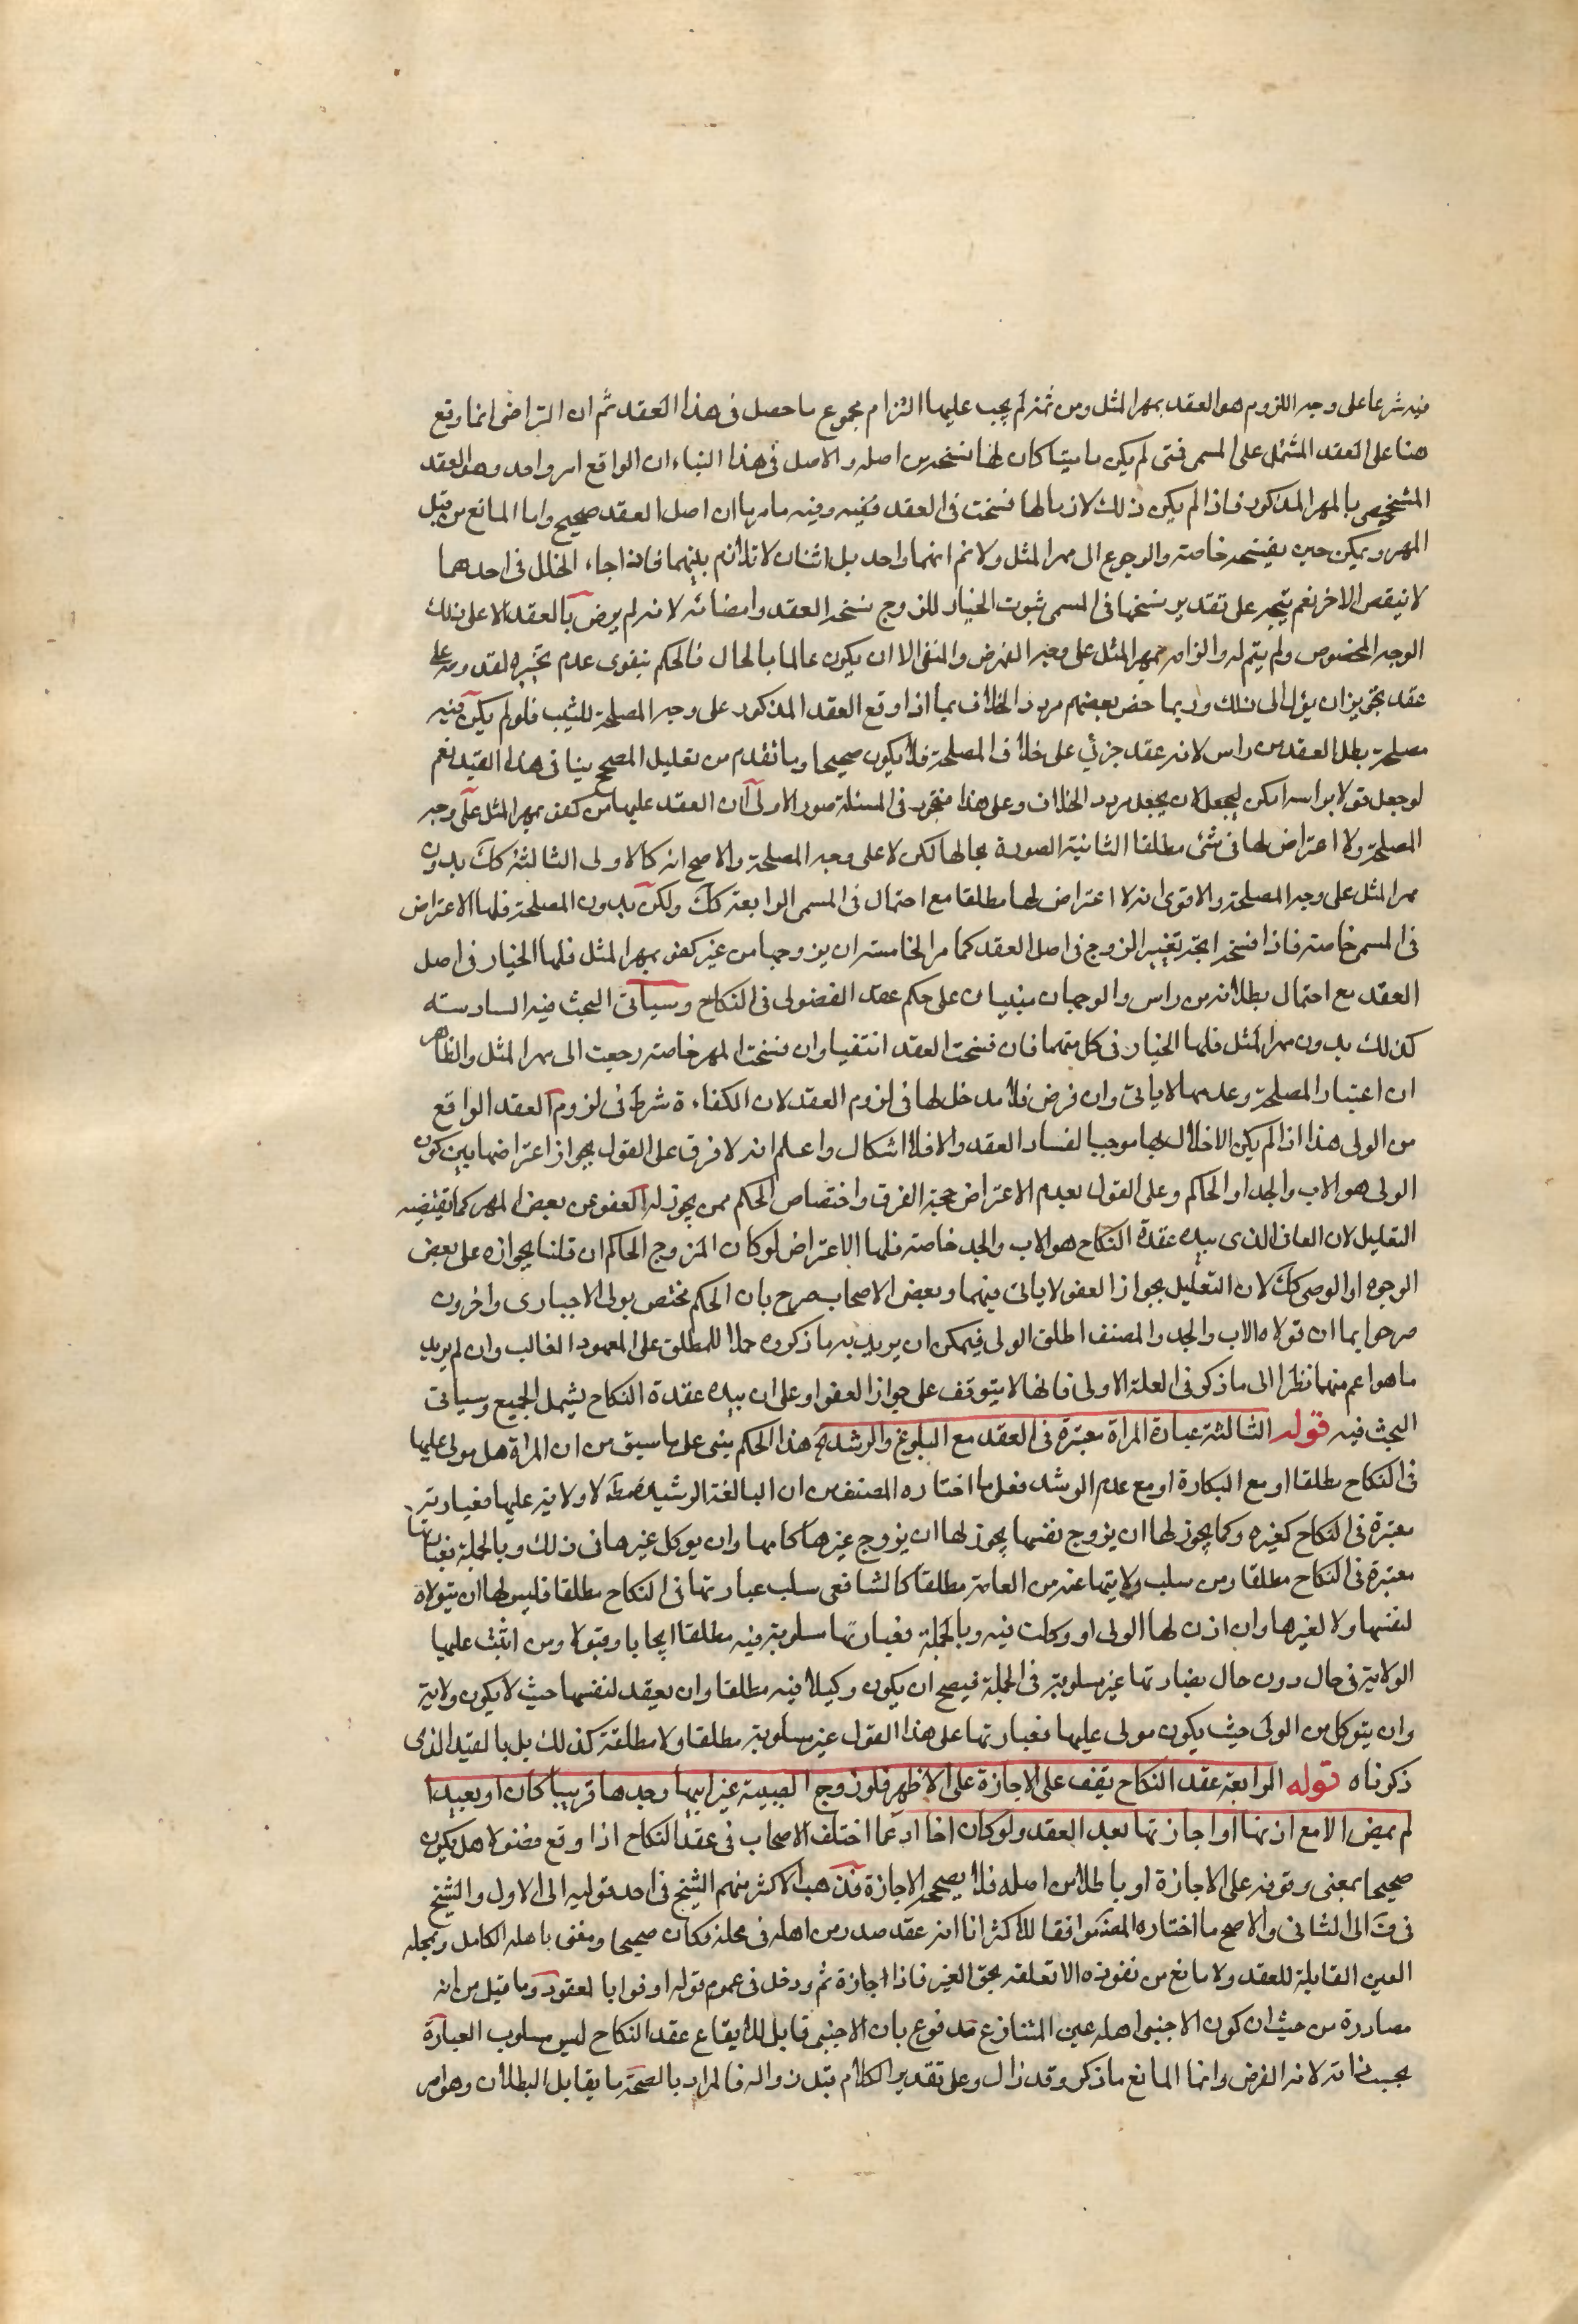 فيه شرعا على وجه اللزوم هو العقد بمهر المثل ومن ثمه لم يجب عليها التزام مجموع ما حصل فى هذا العقد ثم ان التراضى انما وقع
هنا على العقد المشتمل على المسمى فمتى لم يكن ماضيا كان لها فسخه من اصله والاصل فى هذا البناء ان الواقع امر واحد وهو العقد
المشخص بالمهر المذكور فاذا لم يكن ذلك لازما لها فسخت فى العقد نفسه وفيه ما مر بان اصل العقد صحيح وانما المانع من قبل
المهر ويمكن جبره بفسخه خاصة والرجوع الى مهر المثل ولانم انهما واحد بل اثنان لا تلازم بينهما فاذا جاء الخلل فى احدهما
لا ينقص الاخر نعم يتجه على تقدير فسخها فى المسمى ثبوت الخيار للزوج فسخ العقد وامضائه لانه لم يرض بالعقد الا على ذلك
الوجه المخصوص ولم يتم له والزامه بمهر المثل على وجه القهر ضرر منفى الا ان يكون عالما بالحال فالحكم بنقوى عدم تخييره لقدومه على
عقد يجوزان يؤل الى ذلك وربما خص بعضهم مورد الخلاف بما اذا وقع العقد المذكور على وجه المصلحة للبنت فلو لم يكن فيه
مصلحة بطل العقد من راس لانه عقد جزئى على خلاف المصلحة فلا يكون صحيحا وما تقدم من تعليل المصحح ينافى هذا القيد نعم
لو جعل قولا براسه امكن ليجعل لان يجعل مورد الخلاف وعلى هذا فتحرر فى المسئلة صور الاولى ان العقد عليها من كفو بمهر المثل على وجه
المصلحة ولا اعتراض لها فى شئ مطلقا الثانية الصورة بحالها لكن لا على وجه المصلحة والاصح انه كالاولى الثالثة كك بدون
مهر المثل على وجه المصلحة والاقوى انه لا اعتراض لها مطلقا مع احتمال فى المسمى الرابعة كك ولكن بدون المصلحة فلها الاعتراض
فى المسمى خاصة فاذا فسخه اتجه تخيير الزوج فى اصل العقد كما مر الخامسة ان يزوجها من غير كفو بمهر المثل فلها الخيار فى اصل
العقد مع احتمال بطلانه من راس والوجهان مبنيان على حكم عقد الفضولى فى النكاح وسياتى البحث فيه السادسة
كذلك بدون مهر المثل فلها الخيار فى كل منهما فان فسخت العقد انتفيا وان فسخت المهر خاصة رجعت الى مهر المثل والظاهر
ان اعتبار المصلحة وعدمها لا ياتى وان فرض فلا مدخل لها فى لزوم العقد لان الكفاءة شرط فى لزوم العقد الواقع
من الولى هذا اذا لم يكن الاخلال بها موجبا لفساد العقد والا فلا اشكال واعلم انه لا فرق على القول بجواز اعتراضها بين كون
الولى هو الاب والجد او الحاكم وعلى القول بعدم الاعتراض يتجه الفرق واختصاص الحكم بمن يجوز له العفو عن بعض المهر كما يقتضيه
التعليل لان العافى الذى بيده عقدة النكاح هو الاب والجد خاصة فلها الاعتراض لو كان المزوج الحاكم ان قلنا بجوازه على بعض
الوجوه او الوصى كك لان التعليل بجواز العفو لا ياتى فيهما وبعض الاصحاب صرح بان الحكم مختص بولى الاجبارى واخرون
صرحوا بما ان تولاه الاب والجد والمصنف اطلق الولى فيمكن ان يريد به ما ذكروه حملا للمطلق على المعهود الغالب وان لم يريد
ما هو اعم منهما نظرا الى ما ذكر فى العلة الاولى فانها لا يتوقف على جواز العفو او على ان بيده عقدة النكاح يشمل الجميع وسياتى
البحث فيه قوله الثالثة عبارة المراة معتبرة فى العقد مع البلوغ والرشد هذا الحكم يبنى على ما سبق من ان المراة هل مولى عليها
فى النكاح مطلقا او مع البكارة او مع عدم الرشد فعلى ما اختاره المصنف من ان البالغة الرشيدة لا ولاية عليها فعبارتها
معتبرة فى النكاح كغيره وكما يجوز لها ان يزوج نفسها يجوز لها ان يزوج غيرها كامها وان يوكل غيرها فى ذلك وبالجملة فعبارتها
معتبرة فى النكاح مطلقا ومن سلب ولايتها عنه من العامة مطلقا كالشافعى سلب عبارتها فى النكاح مطلقا فليس لها ان يتولاه
لنفسها ولا لغيرها وان اذن لها الولى او وكلت فيه وبالجملة فعبارتها مسلوبة فيه مطلقا ايجابا وقبولا ومن اثبت عليها
الولاية فى حال دون حال فعبارتها غير مسلوبة فى الجملة فيصح ان يكون وكيلا فيه مطلقا وان يعقد لنفسها حيث لا يكون ولاية
وان يتوكل من الولى حيث يكون مولى عليها فعبارتها على هذا القول غير مسلوبة مطلقا ولا مطلقة كذلك بل بالقيد الذى
ذكرناه قوله الرابعة عقد النكاح يقف على الاجازة على الاظهر فلو زوج الصبية غير ابيها وجدها قريبا كان او بعيدا
لم يمض الا مع اذنها او اجازتها بعد العقد ولو كان اخا او عما اختلف الاصحاب فى عقد النكاح اذا وقع فضولا هل يكون
صحيحا بمعنى وقوفه على الاجازة او باطلا من اصله فلا يصححه الاجازة فذهب الاكثر منهم الشيخ فى احد قوليه الى الاول والشيخ
فى ف الى الثانى والاصح ما اختاره المصنف موافقا للاكثر انا انه عقد صدر من اهله فى محله فكان صحيحا ومعنى باهله الكامل وبمحله
العين القابلة للعقد ولا مانع من نفوذه الا تعلقه بحق الغير فاذا اجازة ثم ودخل فى عموم قوله اوفوا بالعقود وما قيل من انه
مصادرة من حيث ان كون الاجنبى اهله عين المتنازع مدفوع بان الاجنبى قابل للايقاع عقد النكاح ليس مسلوب العبارة
بحسب ذاته لانه الفرض وانما المانع ما ذكر وقد زال وعلى تقدير الكلام قبل زواله فالمراد بالصحة ما يقابل البطلان وهو امر